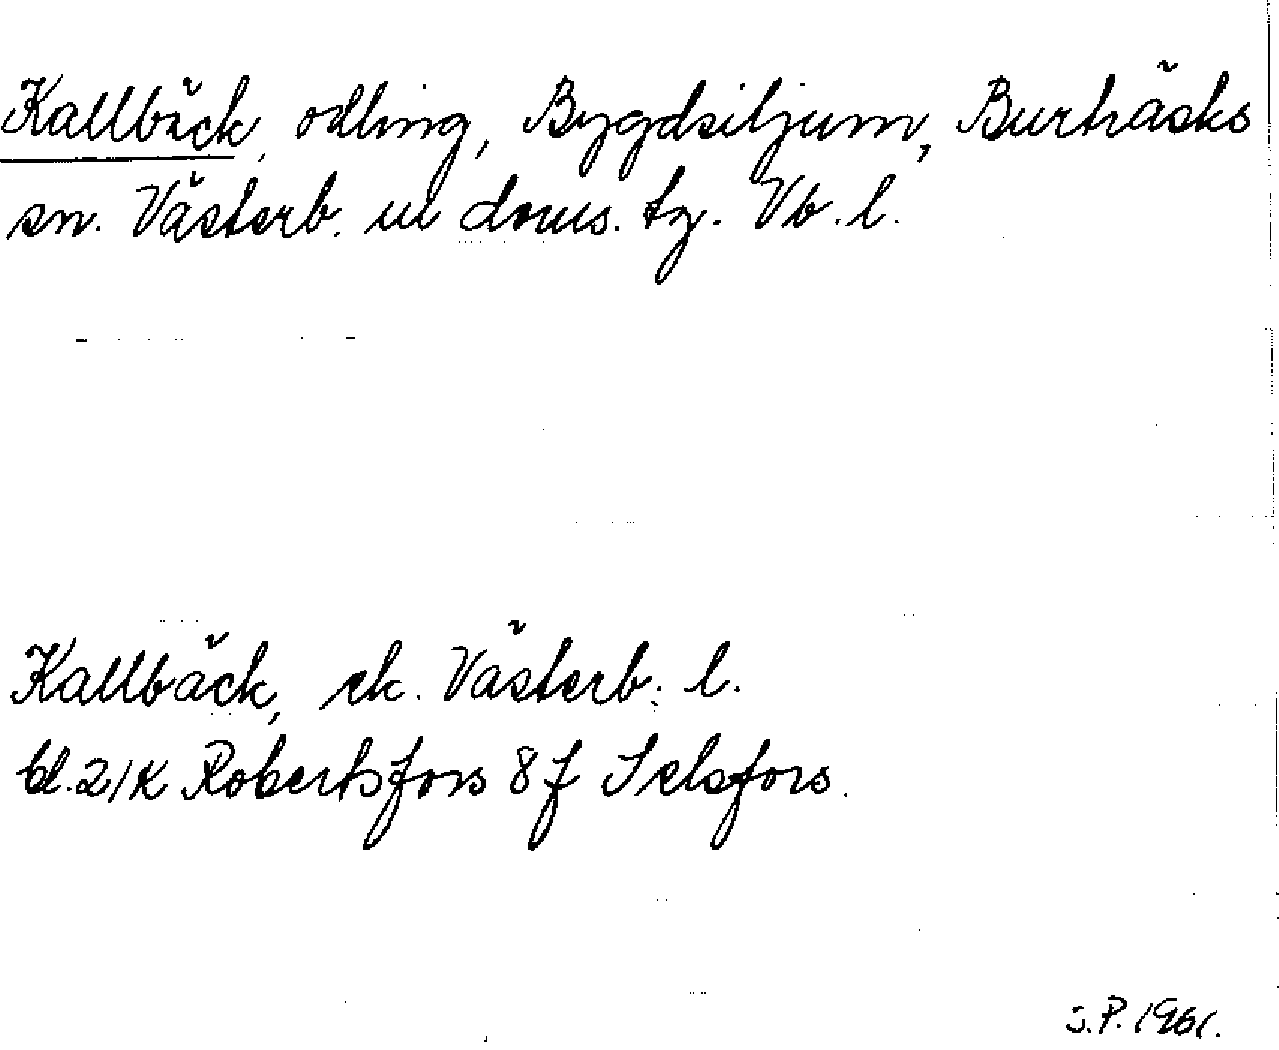 Kallbäck, odling, Bygdsiljum, Burträsks
sn. Västerb. ul doms. tg. Vb. l.
Kallbäck, ek. Västerb. l.
bl. 21K Robertsfors 8f Selsfors.
J.P. 1961.